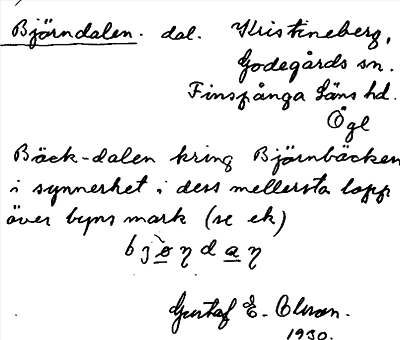 Björndalen. dal. Kristineberg,
Godegårds sn.
Finspånga Läns hd.
Ögl
Bäck-dalen kring Björnbäcken
i synnerhet i dess mellersta lopp
över byns mark (se ek)
Gustaf E.
1930.